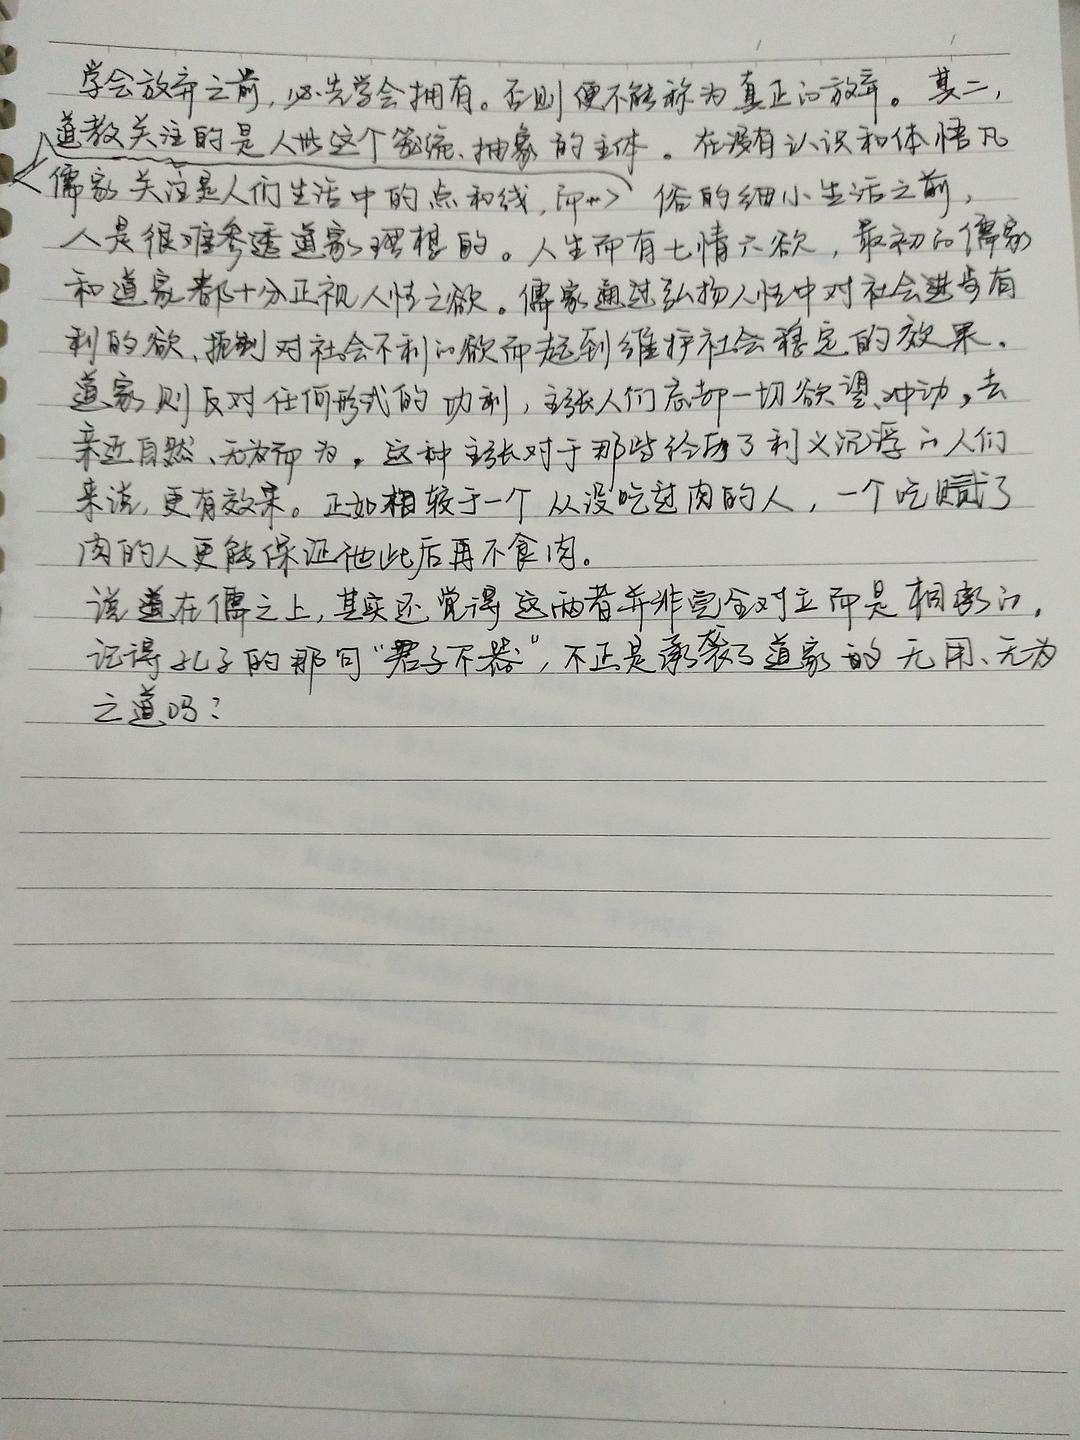 学会放弃之前，必先学会拥有。否则便不能称为真正的放弃。其二，
道教关注的是人世这个笼统、抽象的主体。在没有认识和体悟凡
儒家关注是人们生活中的点和线，而 俗的细小生活之前，
人是很难参透道家理想的。人生而有七情六欲，最初的儒家
和道家都十分正视人性之欲。儒家通过弘扬人性中对社会进步有
利的欲、扼制对社会不利的欲而起到维护社会稳定的效果。
道家则反对任何形式的功利，主张人们忘却一切欲望、冲动，去
亲近自然、无为而为。这种主张对于那些经历了利义沉浮的人们
来说，更有效果。正如相较于一个从没吃过肉的人，一个吃腻了
肉的人更能保证他此后再不食肉。
说道在儒之上，其实还觉得这两者并非完全对立而是相形的，
记得孔子的那句“君子不器”，不正是承袭了道家的无用、无为
之道吗？